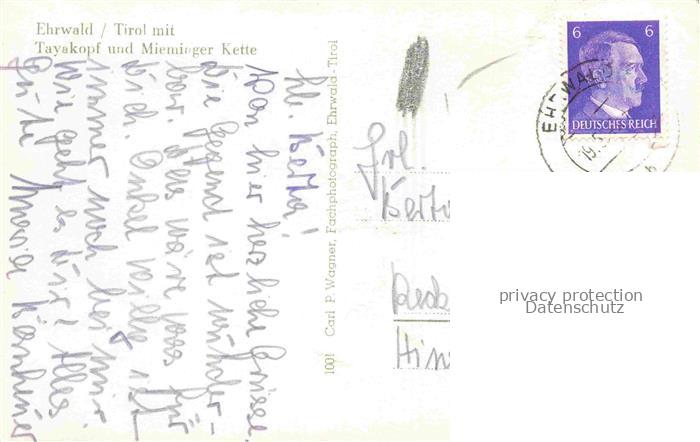 Ehrwald / Tirol mit
Tayakopf und Mieminger Kette
lb. Berta!
Von hier herzliche Grüsse.
Die Gegend ist wunder-
bar. Das wäre was für
Dich. Onkel Willi ist
immer noch bei mir.
Wie geht es Dir? Alles
Gute Maria
1001 Carl P. Wagner, Fachphotograph, Ehrwald-Tirol
6 6
DEUTSCHES REICH
EHRWALD
Frl.
Berta
Heck
Hin
privacy protection
Datenschutz